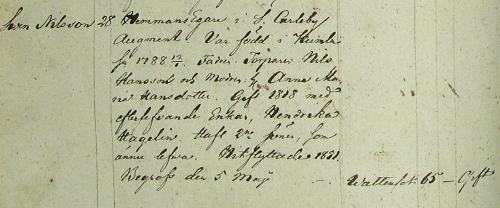 Sven Nilsson 28 Hemmans Egare i S. Carleby
Augment. Var född i Heinla
by 1788 12/1. Fader Torparen Nils
Hansson och Modren Anna Ma
ria Hansdotter. Gift 1818 med
efterlefvande Enkan, Hendreka
Hagelin. Haft 2ne söner, som
ännu lefva. Hitflyttade 1851.
Begrafs den 5 Maij — Wattensot 65 — Gift